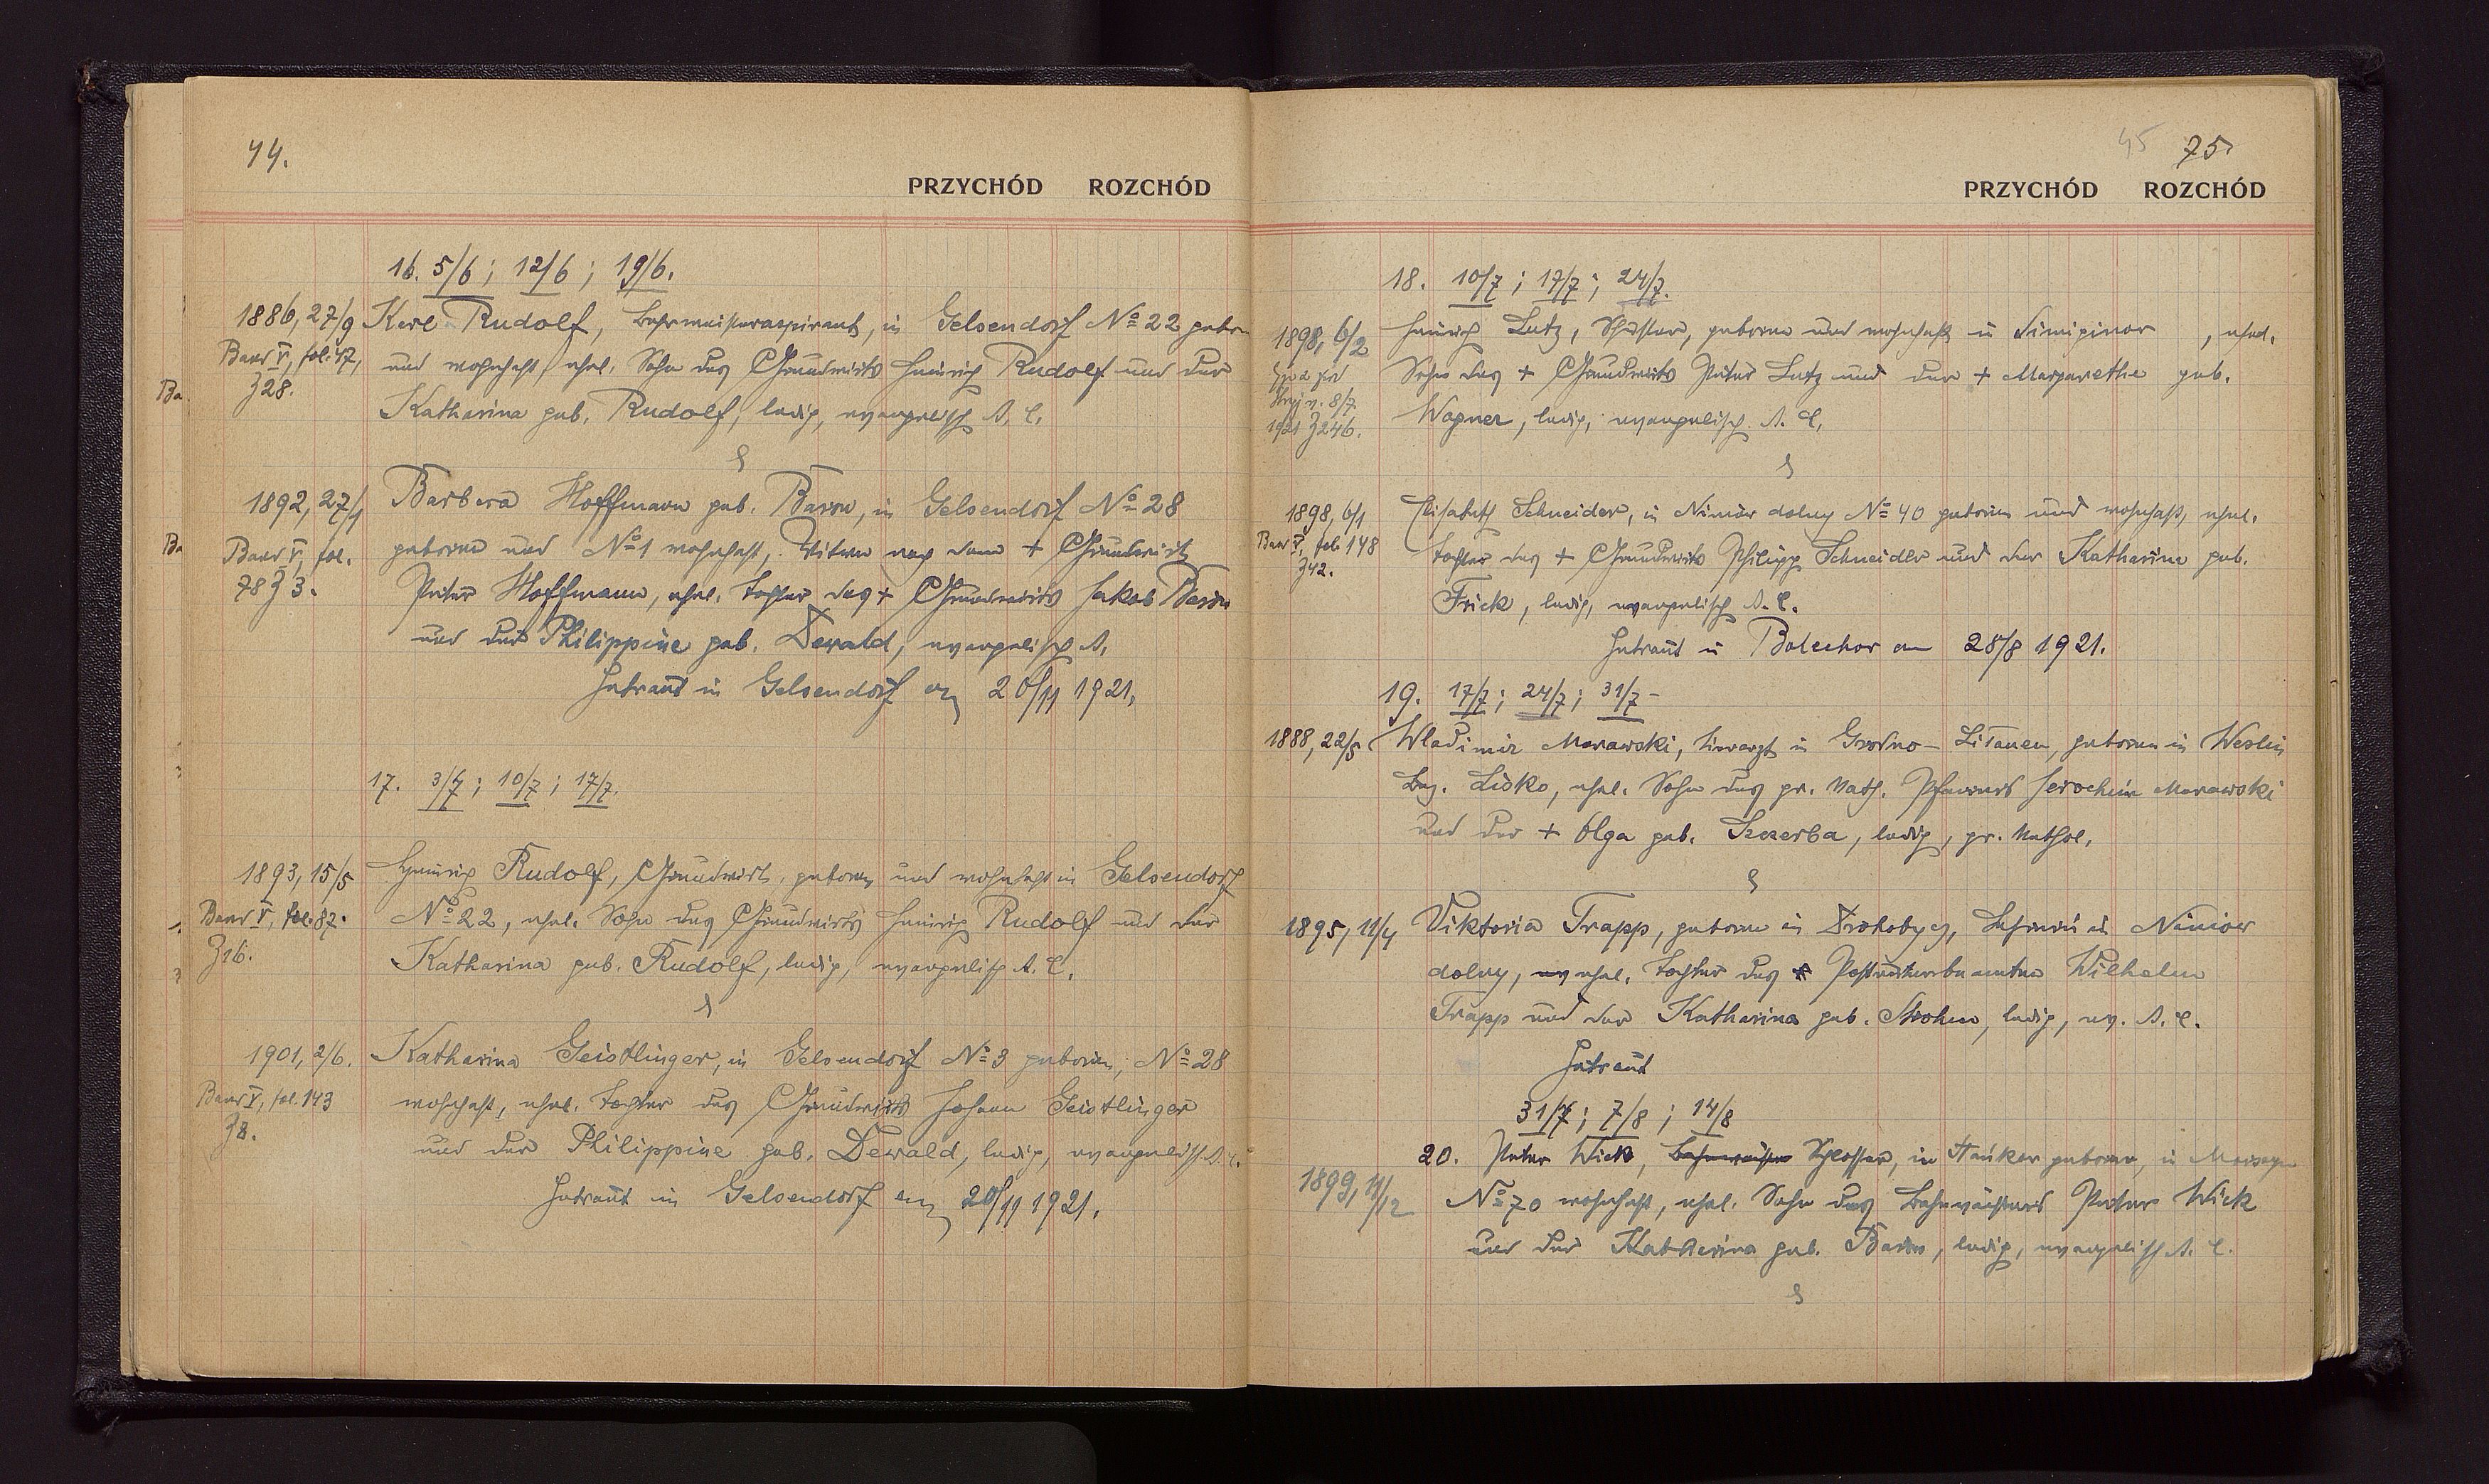 44.
PRZYCHÓD ROZCHÓD
16. 5/6; 12/6; 19/6.
1886, 27/9 Karl Rudolf, Bahnmeisteraspirant, in Gelsendorf No 22 geboren
Band V, fol. 47, und wohnhaft, ehel. Sohn des Grundwirts Heinrich Rudolf und der
Z 28. Katharina geb. Rudolf, ledig, evangelisch A. C.
&
1892, 27/1 Barbara Hoffmann geb. Baron, in Gelsendorf No 28
Band V, fol. geboren und No 1 wohnhaft, Witwe nach dem + Grundwirt
78 Z 3. Peter Hoffmann, ehel. Tochter des + Grundwirts Jakob Baron
und der Philippine geb. Dewald, evangelisch A.
Getraut in Gelsendorf am 20/11 1921.
17. 3/7; 10/7; 17/7.
1893, 15/5 Heinrich Rudolf, Grundwirt, geboren und wohnhaft in Gelsendorf
Band V, fol. 87. No 22, ehel. Sohn des Grundwirts Heinrich Rudolf und der
Z 16. Katharina geb. Rudolf, ledig, evangelisch A. C.
&
1901, 2/6. Katharina Geistlinger, in Gelsendorf No 3 geboren, No 28
Band V, fol. 143 wohnhaft, ehel. Tochter des Grundwirts Johann Geistlinger
Z 8. und der Philippine geb. Dewald, ledig, evangelisch A. C.
Getraut in Gelsendorf am 20/11 1921.
45 75
PRZYCHÓD ROZCHÓD
18. 10/7; 17/7; 24/7.
1898, 6/2 Heinrich Lutz, Schuster, geboren und wohnhaft in , ehel.
Stryj v. 8/7 Sohn des + Grundwirts Peter Lutz und der + Margarethe geb.
1921 Z 246. Wagner, ledig, evangelisch A. C.
&
1898, 6/1 Elisabeth Schneider, in Niniow dolny No 40 geboren und wohnhaft, ehel.
Band V, fol. 148 Tochter des + Grundwirts Philipp Schneider und der Katharina geb.
Z 42. Frick, ledig, evangelisch A. C.
Getraut in Bolechow am 28/8 1921.
19. 17/7; 24/7; 31/7 –
1888, 22/5 Wladimir Morawski, Tierarzt in Grodno – Litauen, geboren in
Bez. Lisko, ehel. Sohn des gr. kath. Pfarrers Morawski
und der + Olga geb. Szczerba, ledig, gr. kathol.
&
1895, 11/4 Viktoria Trapp, geboren in Drohobycz, Lehrerin in Niniow
dolny, ehel. Tochter des Wilhelm
Trapp und der Katharina geb. , ledig, ev. A. C.
Getraut
31/7; 7/8; 14/8
20. Peter Wick, Schlosser, in geboren, in
1899, 11/12 No 70 wohnhaft, ehel. Sohn des Bahnwächters Peter Wick
und der Katharina geb. Baron, ledig, evangelisch A. C.
&